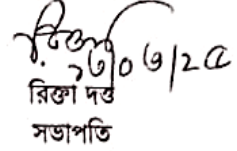 রিক্তা
৩০৬/২৫
রিক্তা দত্ত
সভাপতি